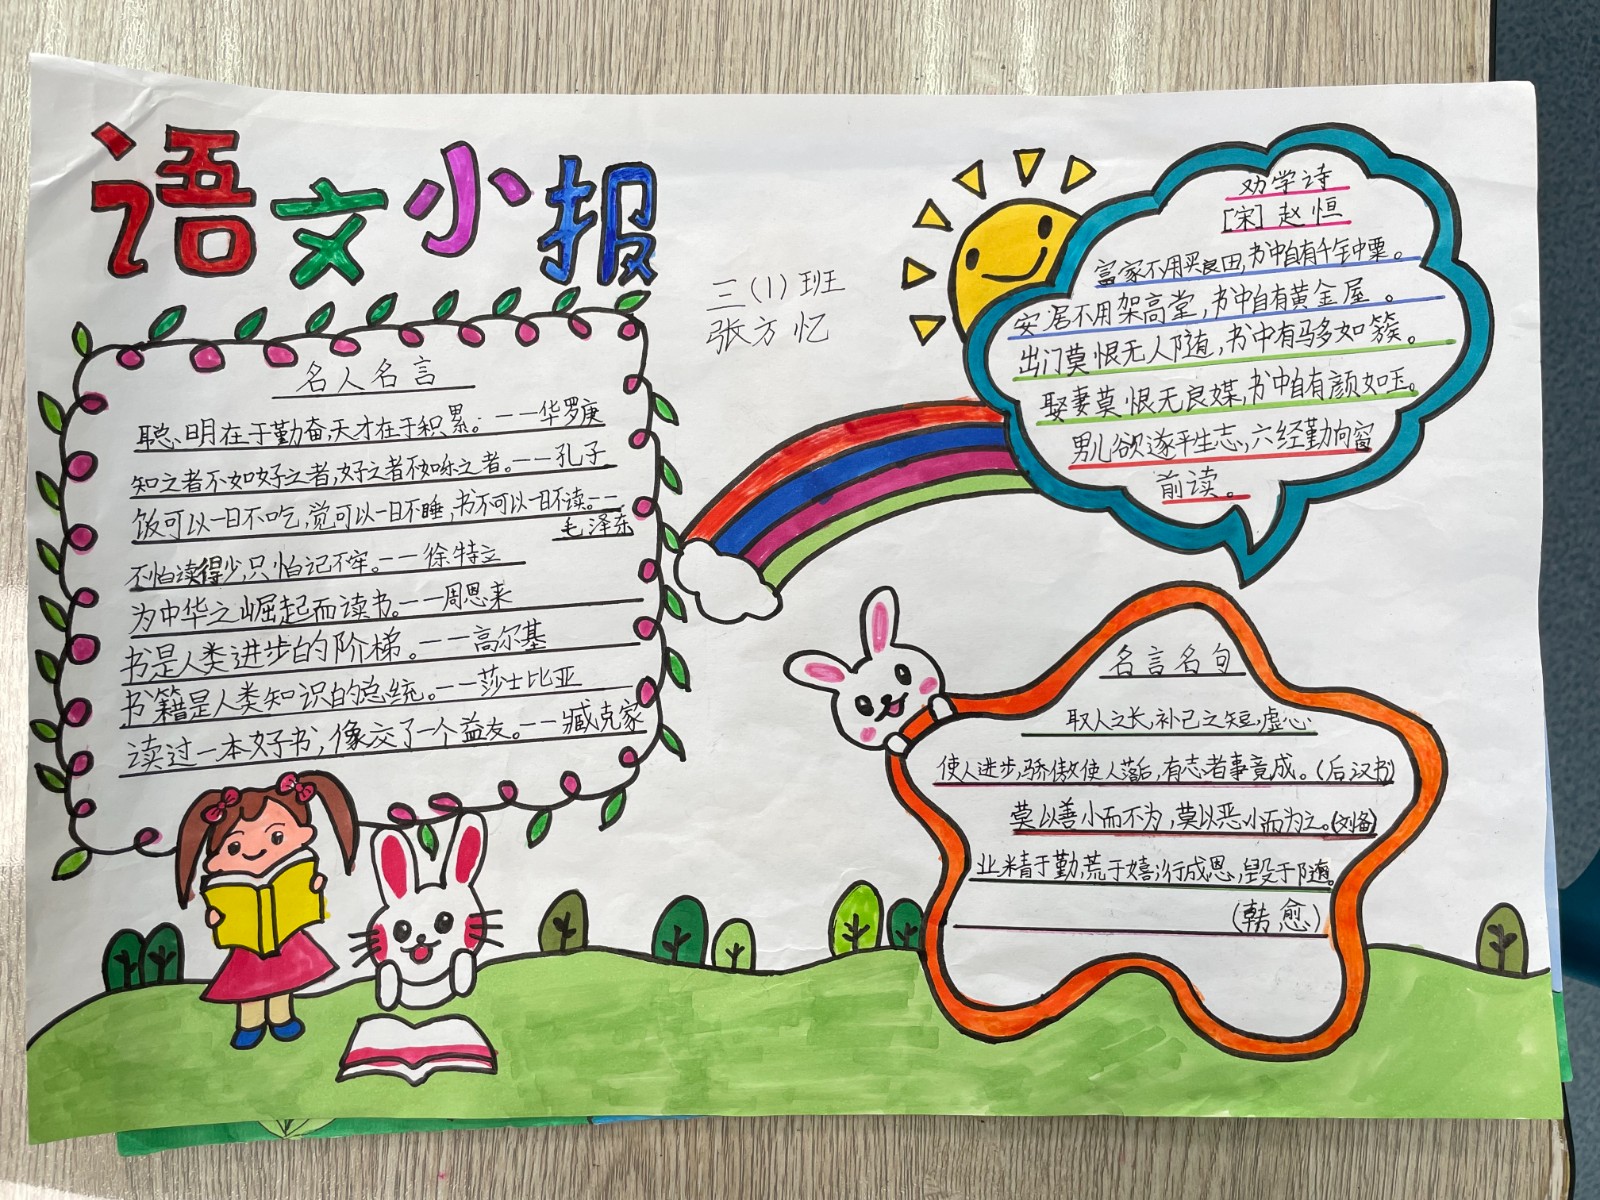 语文小报
三(1)班
张方忆
名人名言
聪明在于勤奋,天才在于积累。——华罗庚
知之者不如好之者,好之者不如乐之者。——孔子
饭可以一日不吃,觉可以一日不睡,书不可以一日不读。——
毛泽东
不怕读得少,只怕记不牢。——徐特立
为中华之崛起而读书。——周恩来
书是人类进步的阶梯。——高尔基
书籍是人类知识的总统。——莎士比亚
读过一本好书,像交了一个益友。——臧克家
劝学诗
[宋]赵恒
富家不用买良田,书中自有千钟粟。
安居不用架高堂,书中自有黄金屋。
出门莫恨无人随,书中有马多如簇。
娶妻莫恨无良媒,书中自有颜如玉。
男儿欲遂平生志,六经勤向窗
前读。
名言名句
取人之长,补己之短,虚心
使人进步,骄傲使人落后,有志者事竟成。(后汉书)
莫以善小而不为,莫以恶小而为之。(刘备)
业精于勤,荒于嬉;行成思,毁于随。
(韩愈)